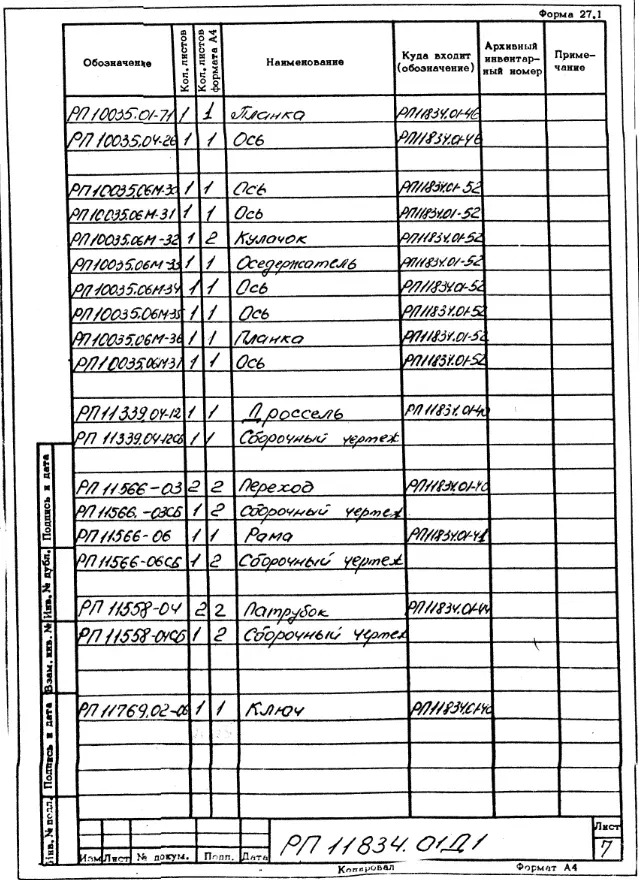 Форма 27.1
Обозначение Кол. листов Кол. листов формата А4 Наименование Куда входит (обозначение) Архивный инвентарный номер Примечание
РП10035.01-71 1 1 Планка РП11834.01-46
РП10035.04-26 1 1 Ось РП11834.01-46
РП10035.06М-30 1 1 Ось РП11834.01-52
РП10035.06М-31 1 1 Ось РП11834.01-52
РП10035.06М-32 1 2 Кулачок РП11834.01-52
РП10035.06М-33 1 1 Оседержатель РП11834.01-52
РП10035.06М-34 1 1 Ось РП11834.01-52
РП10035.06М-35 1 1 Ось РП11834.01-52
РП10035.06М-36 1 1 Планка РП11834.01-52
РП10035.06М37 1 1 Ось РП11834.01-52
РП11339.04-12 1 1 Дроссель РП11834.01-40
РП 11339.04-12СБ 1 1 Сборочный чертеж
РП 11566-03 2 2 Переход РП11834.01-40
РП 11566.-03СБ 1 2 Сборочный чертеж
РП 11566-06 1 1 Рама РП11834.01-41
РП 11566-06СБ 1 2 Сборочный чертеж
РП 11558-04 2 2 Патрубок РП11834.01-44
РП 11558-04СБ 1 2 Сборочный чертеж
РП 11769.02-06 1 1 Ключ РП11834.01-40
Инв. № подл. Подпись и дата Взам. инв. № Инв. № дубл. Подпись и дата
Изм Лист № докум. Подп. Дата
РП 11834.01Д1
Лист
7
Копировал Формат А4